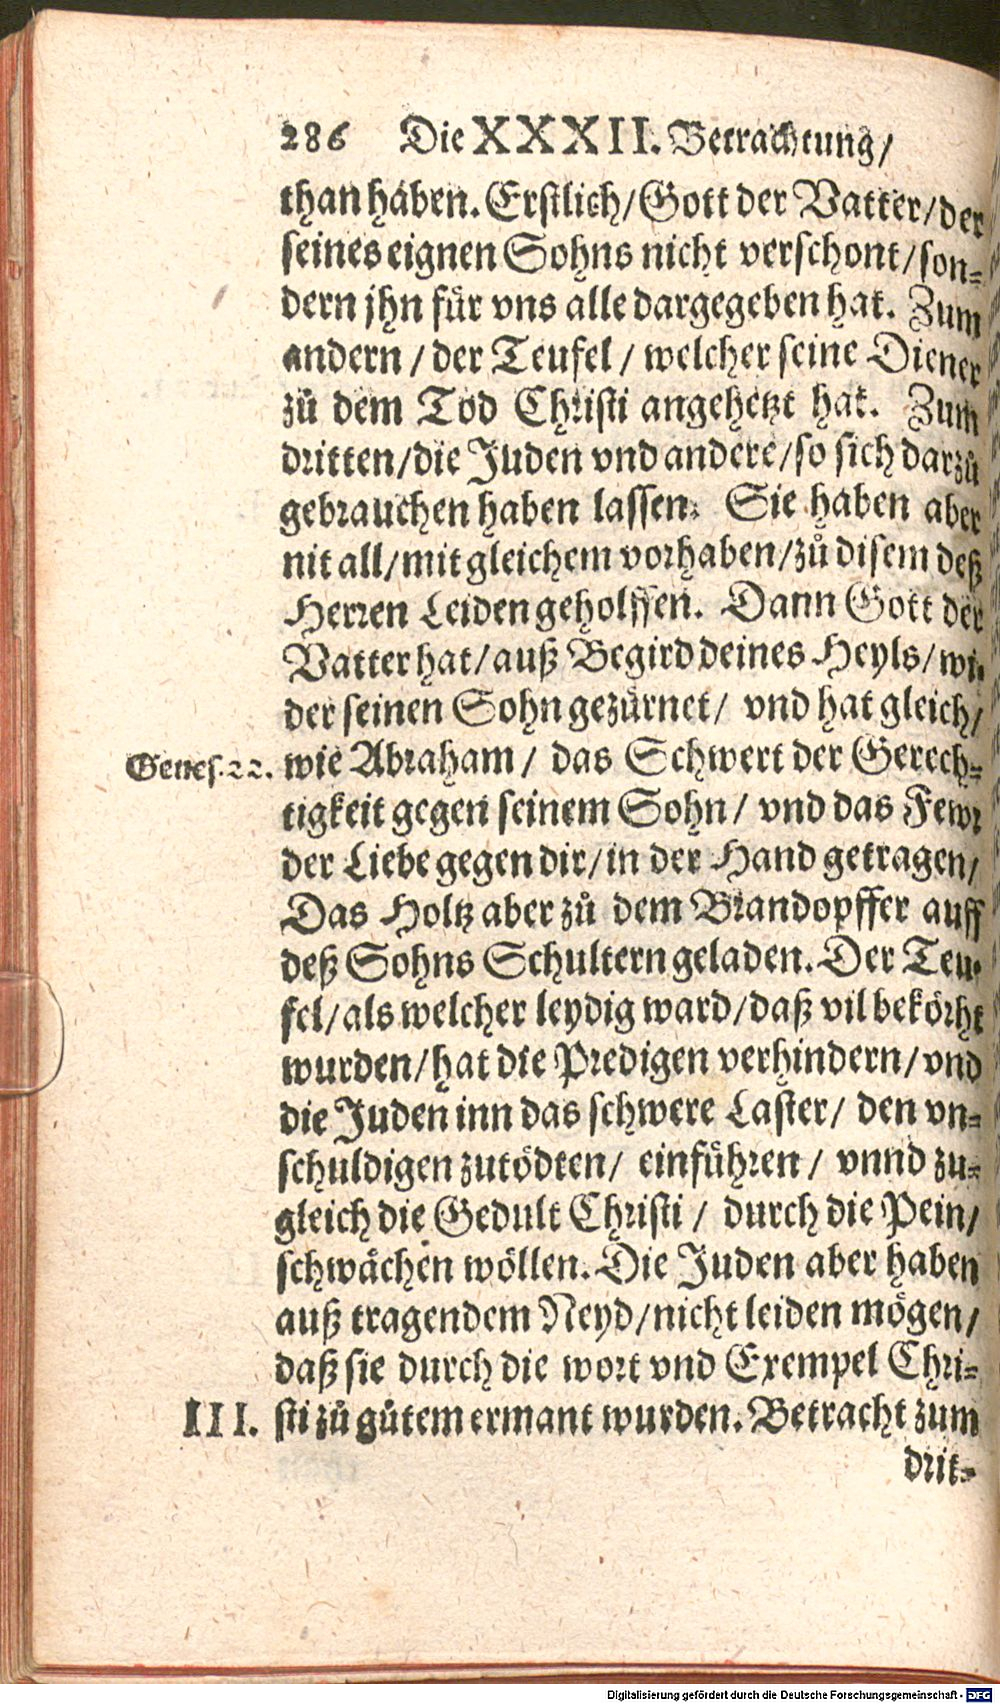 286 Die XXXII. Betrachtung/
than haben. Erstlich/Gott der Vatter/der
seines eignen Sohns nicht verschont/son-
dern jhn für vns alle dargegeben hat. Zum
andern / der Teufel / welcher seine Diener
zů dem Tod Christi angehetzt hat. Zum
dritten/die Juden vnd andere/so sich darzů
gebrauchen haben lassen. Sie haben aber
nit all/mit gleichem vorhaben/zů disem deß
Herren Leiden geholffen. Dann Gott der
Vatter hat/auß Begird deines Heyls/wi-
der seinen Sohn gezürnet/ vnd hat gleich/
Genes.22. wie Abraham / das Schwert der Gerech-
tigkeit gegen seinem Sohn / vnd das Fewr
der Liebe gegen dir/in der Hand getragen/
Das Holtz aber zů dem Brandopffer auff
deß Sohns Schultern geladen. Der Teu-
fel/als welcher leydig ward/daß vil bekörht
wurden/hat die Predigen verhindern/vnd
die Juden inn das schwere Laster/ den vn-
schuldigen zutödten/ einführen / vnnd zu-
gleich die Gedult Christi / durch die Pein/
schwächen wöllen. Die Juden aber haben
auß tragendem Neyd/nicht leiden mögen/
daß sie durch die wort vnd Exempel Chri-
III. sti zů gůtem ermant wurden. Betracht zum
drit-
Digitalisierung gefördert durch die Deutsche Forschungsgemeinschaft - DFG